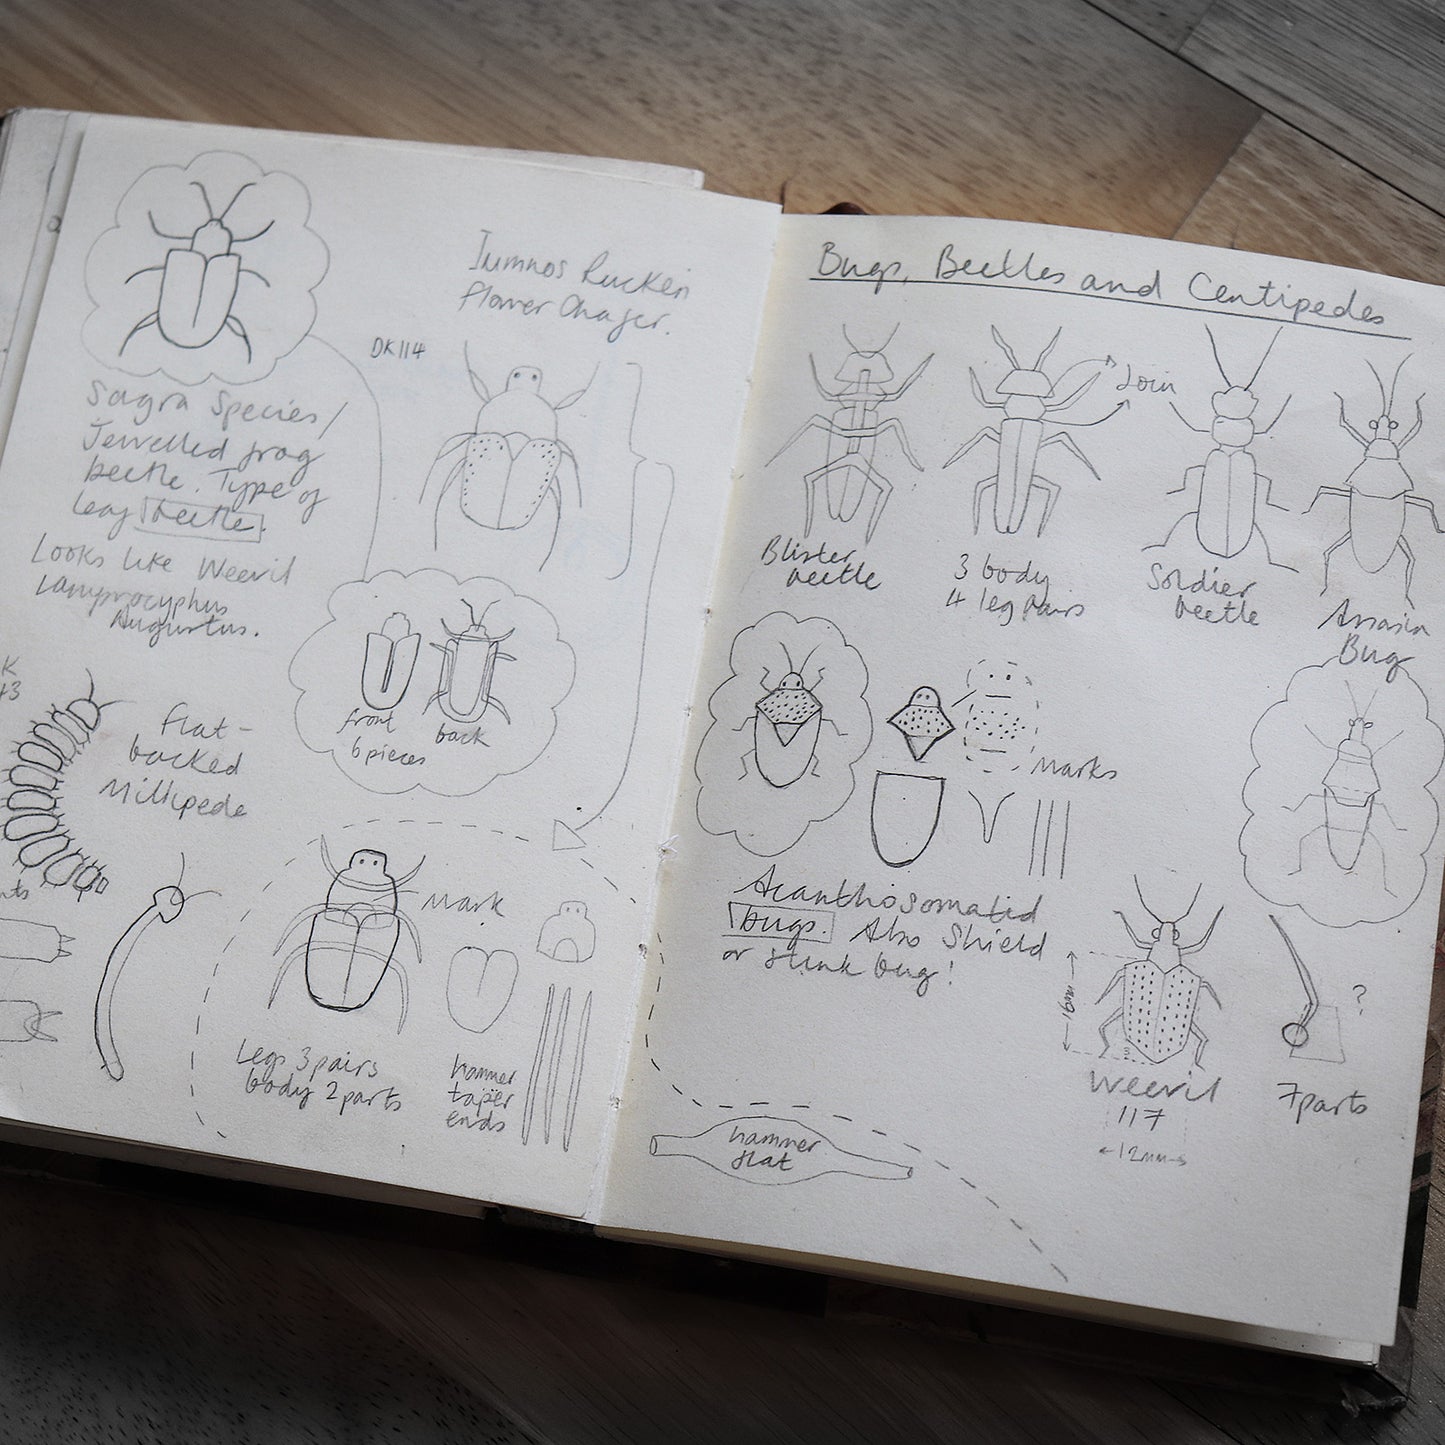 Jumnos Ruckeri
Flower Chafer.
DK114
Sagra Species/
Jewelled frog
beetle. Type of
leaf beetle.
Looks like Weevil
Lamprocyphus
Augustus.
front
back
6 pieces
K
43
Flat-
backed
Millipede
Mark
Legs 3 pairs
body 2 parts
hammer
taper
ends
Bugs, Beetles and Centipedes
Join
Blister
beetle
3 body
4 leg pairs
Soldier
beetle
Assasin
Bug
Marks
Acanthosomatid
bugs. Also Shield
or stink bug!
16mm
Weevil
117
12mm
?
7 parts
hammer
flat